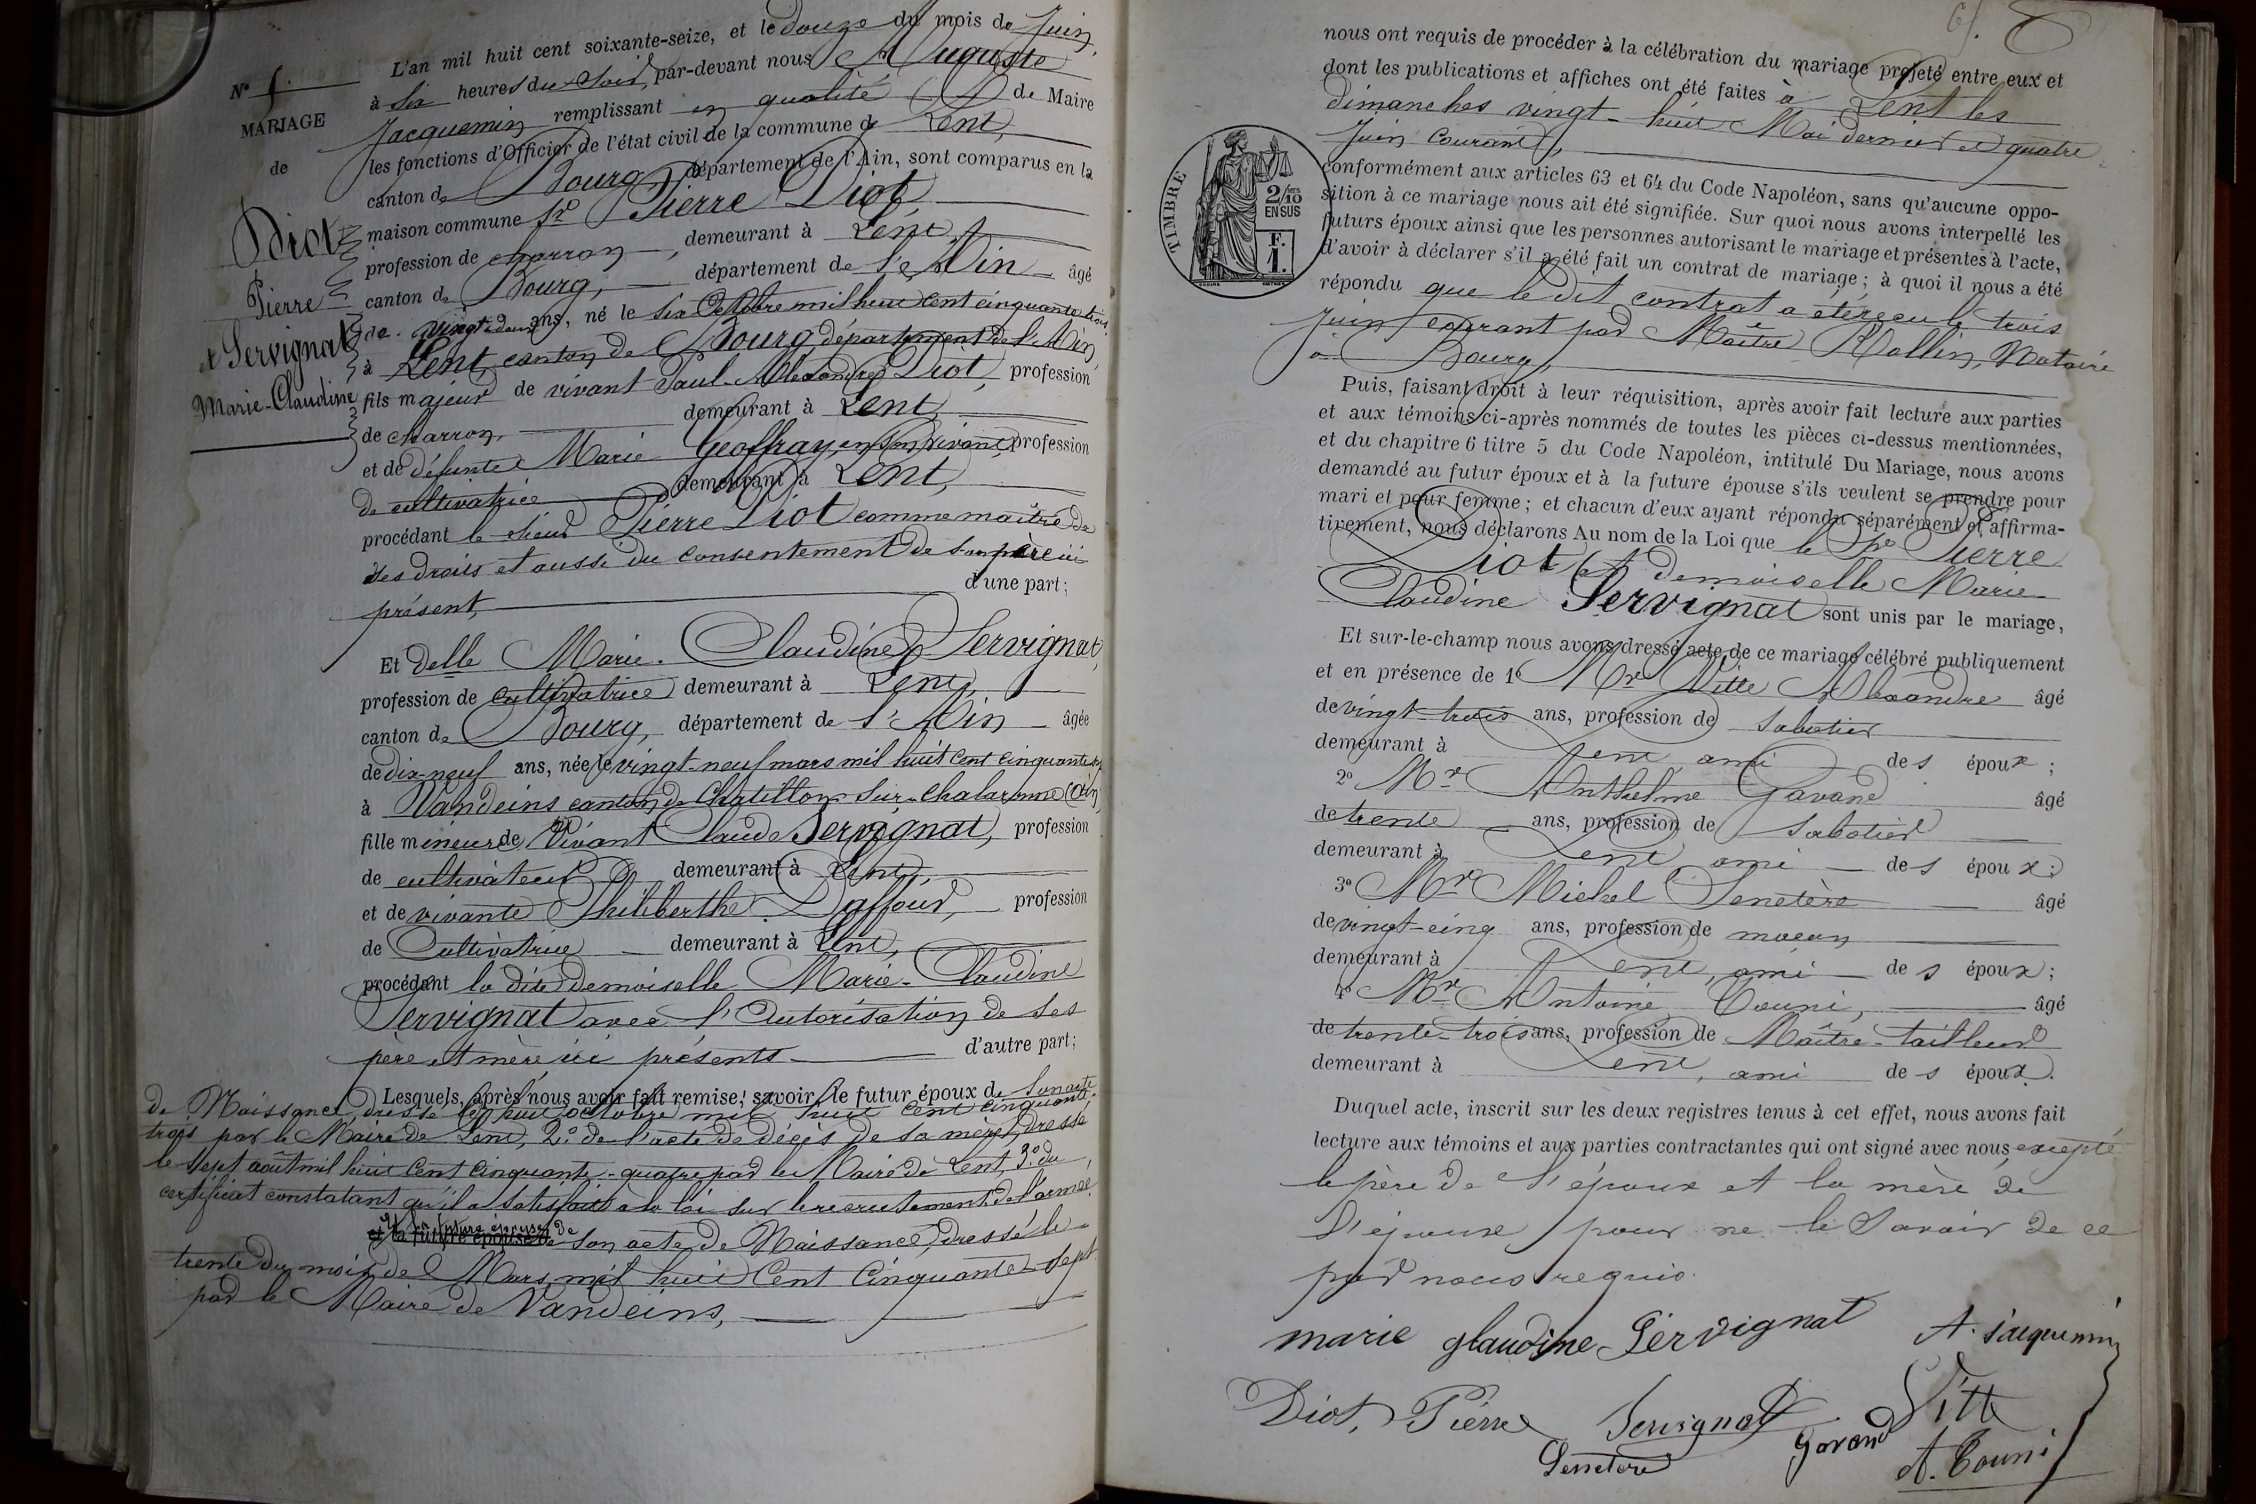 L'an mil huit cent soixante-seize, et le douze du mois de Juin,
à six heures du soir, par-devant nous Auguste
Jacquemin remplissant en qualité de Maire
les fonctions d'Officier de l'état civil de la commune de Lent,
canton de Bourg, département de l'Ain, sont comparus en la
maison commune Sr Pierre Diot,
profession de charron, demeurant à Lent,
canton de Bourg, département de l'Ain âgé
de vingt-deux ans, né le six octobre mil huit cent cinquante trois
à Lent, canton de Bourg département de l'Ain,
fils majeur de vivant Paul-Alexandre Diot, profession
de charron, demeurant à Lent,
et de défunte Marie Geoffray, en son vivant, profession
de cultivatrice demeurant à Lent,
procédant le sieur Pierre Diot comme maître de
ses droits et aussi du consentement de son père ici
présent, d'une part;
Nº
MARIAGE
de
Diot
Pierre
et Servignat
Marie-Claudine
Et Delle Marie-Claudine Servignat,
profession de cultivatrice demeurant à Lent,
canton de Bourg, département de l'Ain âgée
de dix-neuf ans, née le vingt-neuf mars mil huit cent cinquante-sept
à Vandeins canton de Chatillon-sur-Chalaronne (Ain)
fille mineure de vivant Claude Servignat, profession
de cultivateur demeurant à Lent,
et de vivante Philiberthe Daffour, profession
de Cultivatrice demeurant à Lent,
procédant la dite demoiselle Marie-Claudine
Servignat avec l'Autorisation de ses
père et mère ici présents d'autre part;
Lesquels, après nous avoir fait remise, savoir, le futur époux de son acte
de Naissance, dressé le huit octobre mil huit cent cinquante-
trois par le Maire de Lent, 2º de l'acte de décès de sa mère, dressé
le sept août mil huit cent cinquante-quatre par le Maire de Lent, 3º du
certificat constatant qu'il a satisfait à la loi sur le recrutement de l'armée
et la future épouse de son acte de Naissance, dressé le
trente du mois de Mars mil huit Cent Cinquante-sept
par le Maire de Vandeins,
nous ont requis de procéder à la célébration du mariage projeté entre eux et
dont les publications et affiches ont été faites à Lent les
dimanches vingt-huit Mai dernier et quatre
Juin courant,
conformément aux articles 63 et 64 du Code Napoléon, sans qu'aucune oppo-
sition à ce mariage nous ait été signifiée. Sur quoi nous avons interpellé les
futurs époux ainsi que les personnes autorisant le mariage et présentes à l'acte,
d'avoir à déclarer s'il a été fait un contrat de mariage; à quoi il nous a été
répondu que le dit contrat a été reçu le trois
Juin courant par Maître Rollin, Notaire
à Bourg,
TIMBRE
2/10
EN SUS
F.
1.
Puis, faisant droit à leur réquisition, après avoir fait lecture aux parties
et aux témoins ci-après nommés de toutes les pièces ci-dessus mentionnées,
et du chapitre 6 titre 5 du Code Napoléon, intitulé Du Mariage, nous avons
demandé au futur époux et à la future épouse s'ils veulent se prendre pour
mari et pour femme; et chacun d'eux ayant répondu séparément et affirma-
tivement, nous déclarons Au nom de la Loi que le Sr Pierre
Diot et demoiselle Marie-
Claudine Servignat sont unis par le mariage,
Et sur-le-champ nous avons dressé acte de ce mariage célébré publiquement
et en présence de 1º Mr Vitte Alexandre âgé
de vingt-trois ans, profession de sabotier
demeurant à Lent, ami des époux;
2º Mr Anthelme Gavand âgé
de trente ans, profession de sabotier
demeurant à Lent, ami des époux;
3º Mr Michel Senetère âgé
de vingt-cinq ans, profession de maçon
demeurant à Lent, ami des époux;
4º Mr Antoine Couni, âgé
de trente-trois ans, profession de Maître-tailleur
demeurant à Lent, ami des époux.
Duquel acte, inscrit sur les deux registres tenus à cet effet, nous avons fait
lecture aux témoins et aux parties contractantes qui ont signé avec nous, excepté
le père de l'époux et la mère de
l'épouse pour ne le savoir de ce
par nous requis.
marie glaudine Servignat A. Jacquemin
Diot, Pierre Servignat Gavand Vitte
Senetere A. Couni